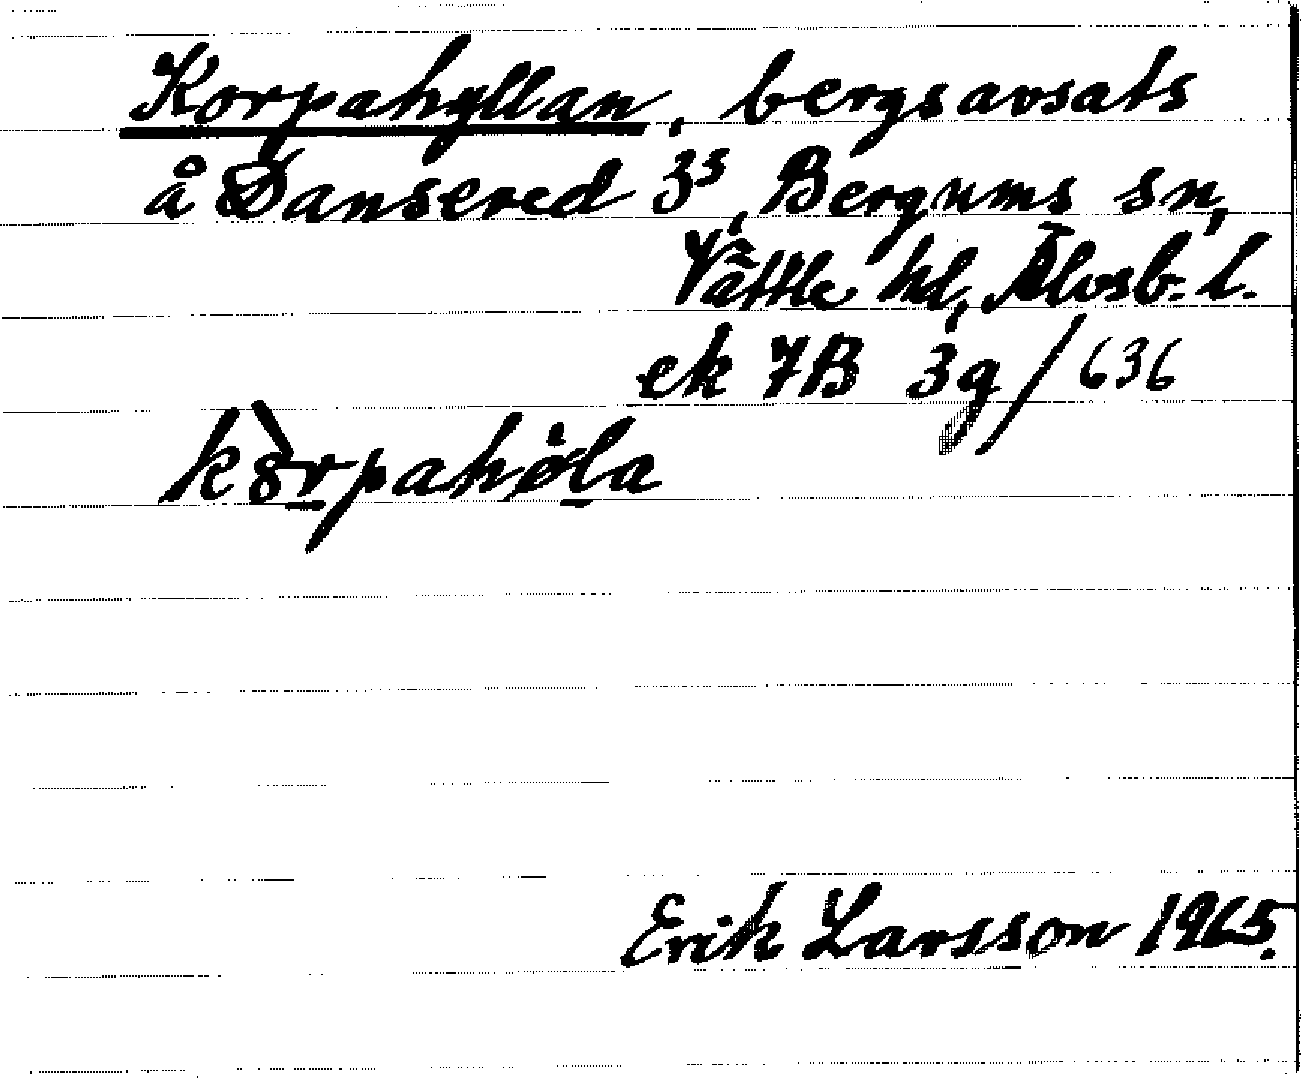 Korpahyllan, bergsavsats
å Dansered 3⁵, Bergums sn,
Vättle hd, Älvsb. l.
ek 7B 3g/636
kòrpahøla
Erik Larsson 1965.